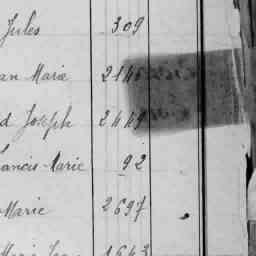 Jules 309
an Marie 2146
d Joseph 2449
rancis-Marie 92
Marie 2697
1643